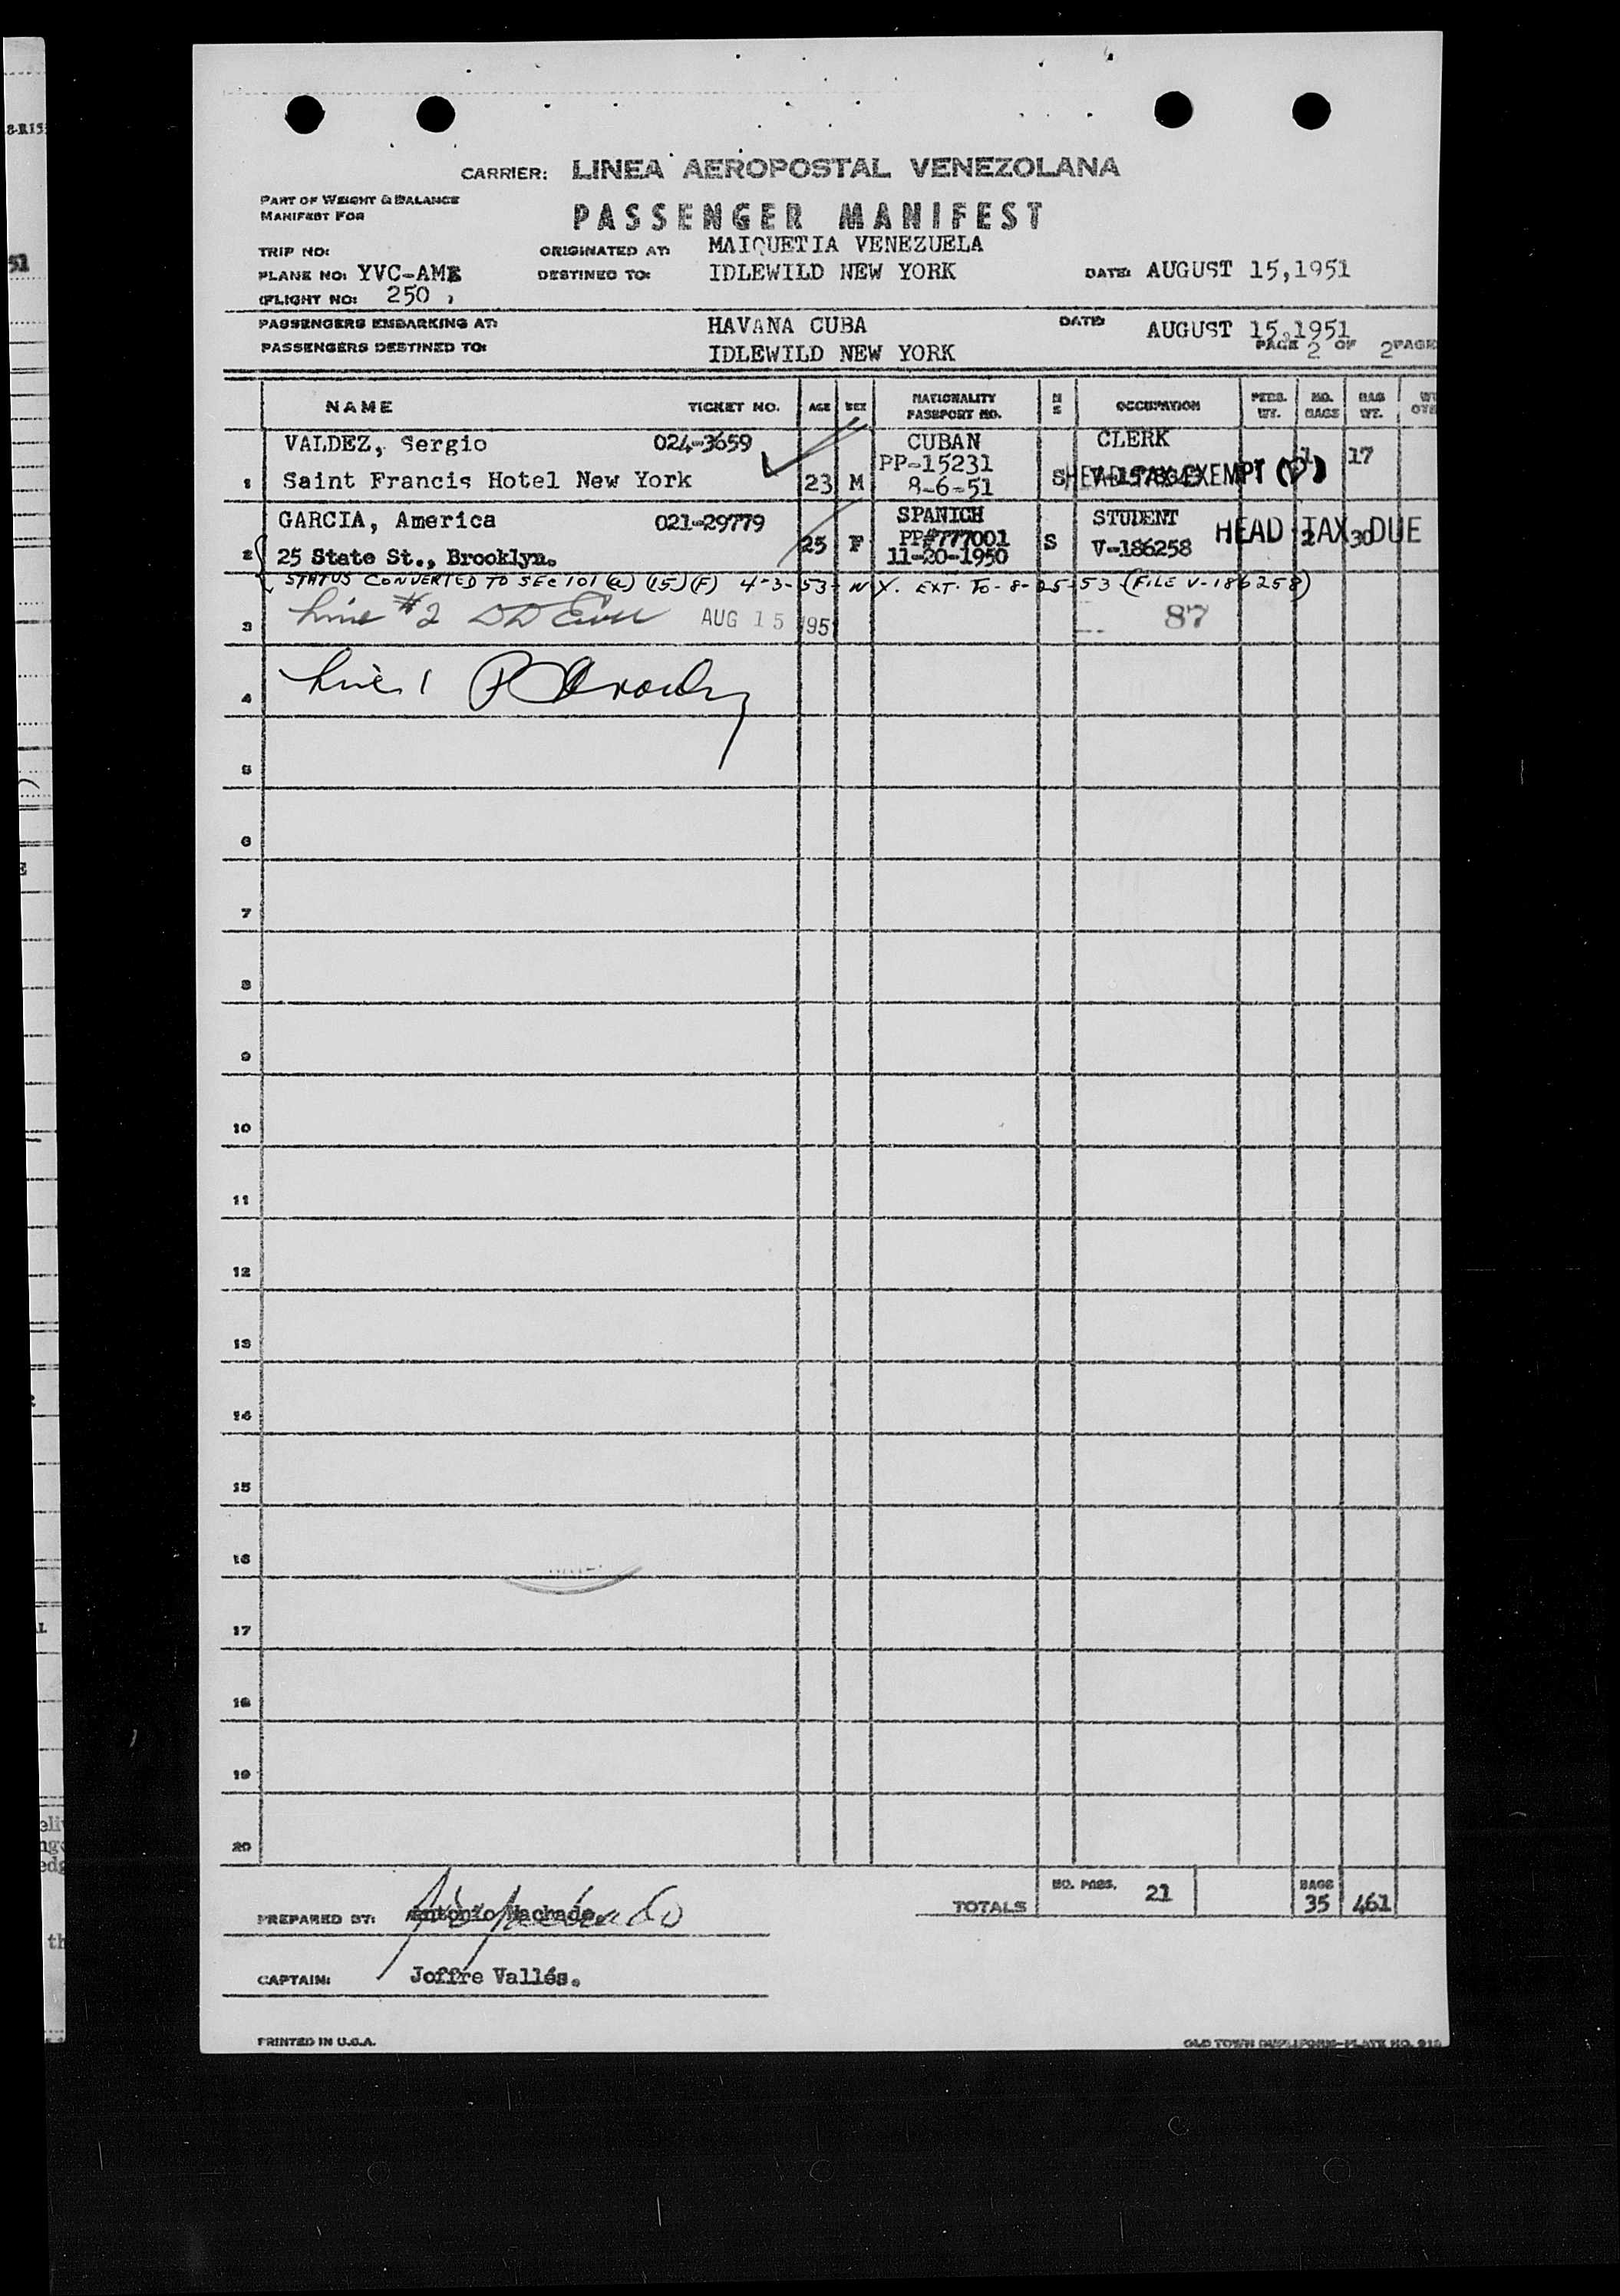 CARRIER: LINEA AEROPOSTAL VENEZOLANA
PART OF WEIGHT & BALANCE
MANIFEST FOR
PASSENGER MANIFEST
TRIP NO:
ORIGINATED AT: MAIQUETIA VENEZUELA
PLANE NO: YVC-AME
DESTINED TO: IDLEWILD NEW YORK
DATE: AUGUST 15,1951
(FLIGHT NO: 250 )
PASSENGERS EMBARKING AT: HAVANA CUBA
DATE: AUGUST 15,1951
PASSENGERS DESTINED TO: IDLEWILD NEW YORK
PAGE 2 OF 2 PAGE
NAME TICKET NO. AGE SEX NATIONALITY PASSPORT NO. M S OCCUPATION PERS. WT. NO. BAGS BAG WT.
VALDEZ, Sergio 024-3659 CUBAN CLERK
PP-15231 1 17
1 Saint Francis Hotel New York 23 M 8-6-51 S HEAD TAX EXEMPT
GARCIA, America 021-29779 SPANICH STUDENT HEAD TAX DUE
PP#777001 2 30
2 25 State St., Brooklyn. 25 F 11-20-1950 S V-186258
STATUS CONVERTED TO SEC 101 (a) (15) (F) 4-3-53- N.Y. EXT. TO- 8-25-53 (FILE V-186258)
3 Line #2 AUG 15 195 87
4 Line 1
5
6
7
8
9
10
11
12
13
14
15
16
17
18
19
20
TOTALS NO. PASS. 21 BAGS 35 461
PREPARED BY: Antonio Machado
CAPTAIN: Joffre Vallés.
PRINTED IN U.S.A.
OLD TOWN DUPLIFORM-PLATE NO.